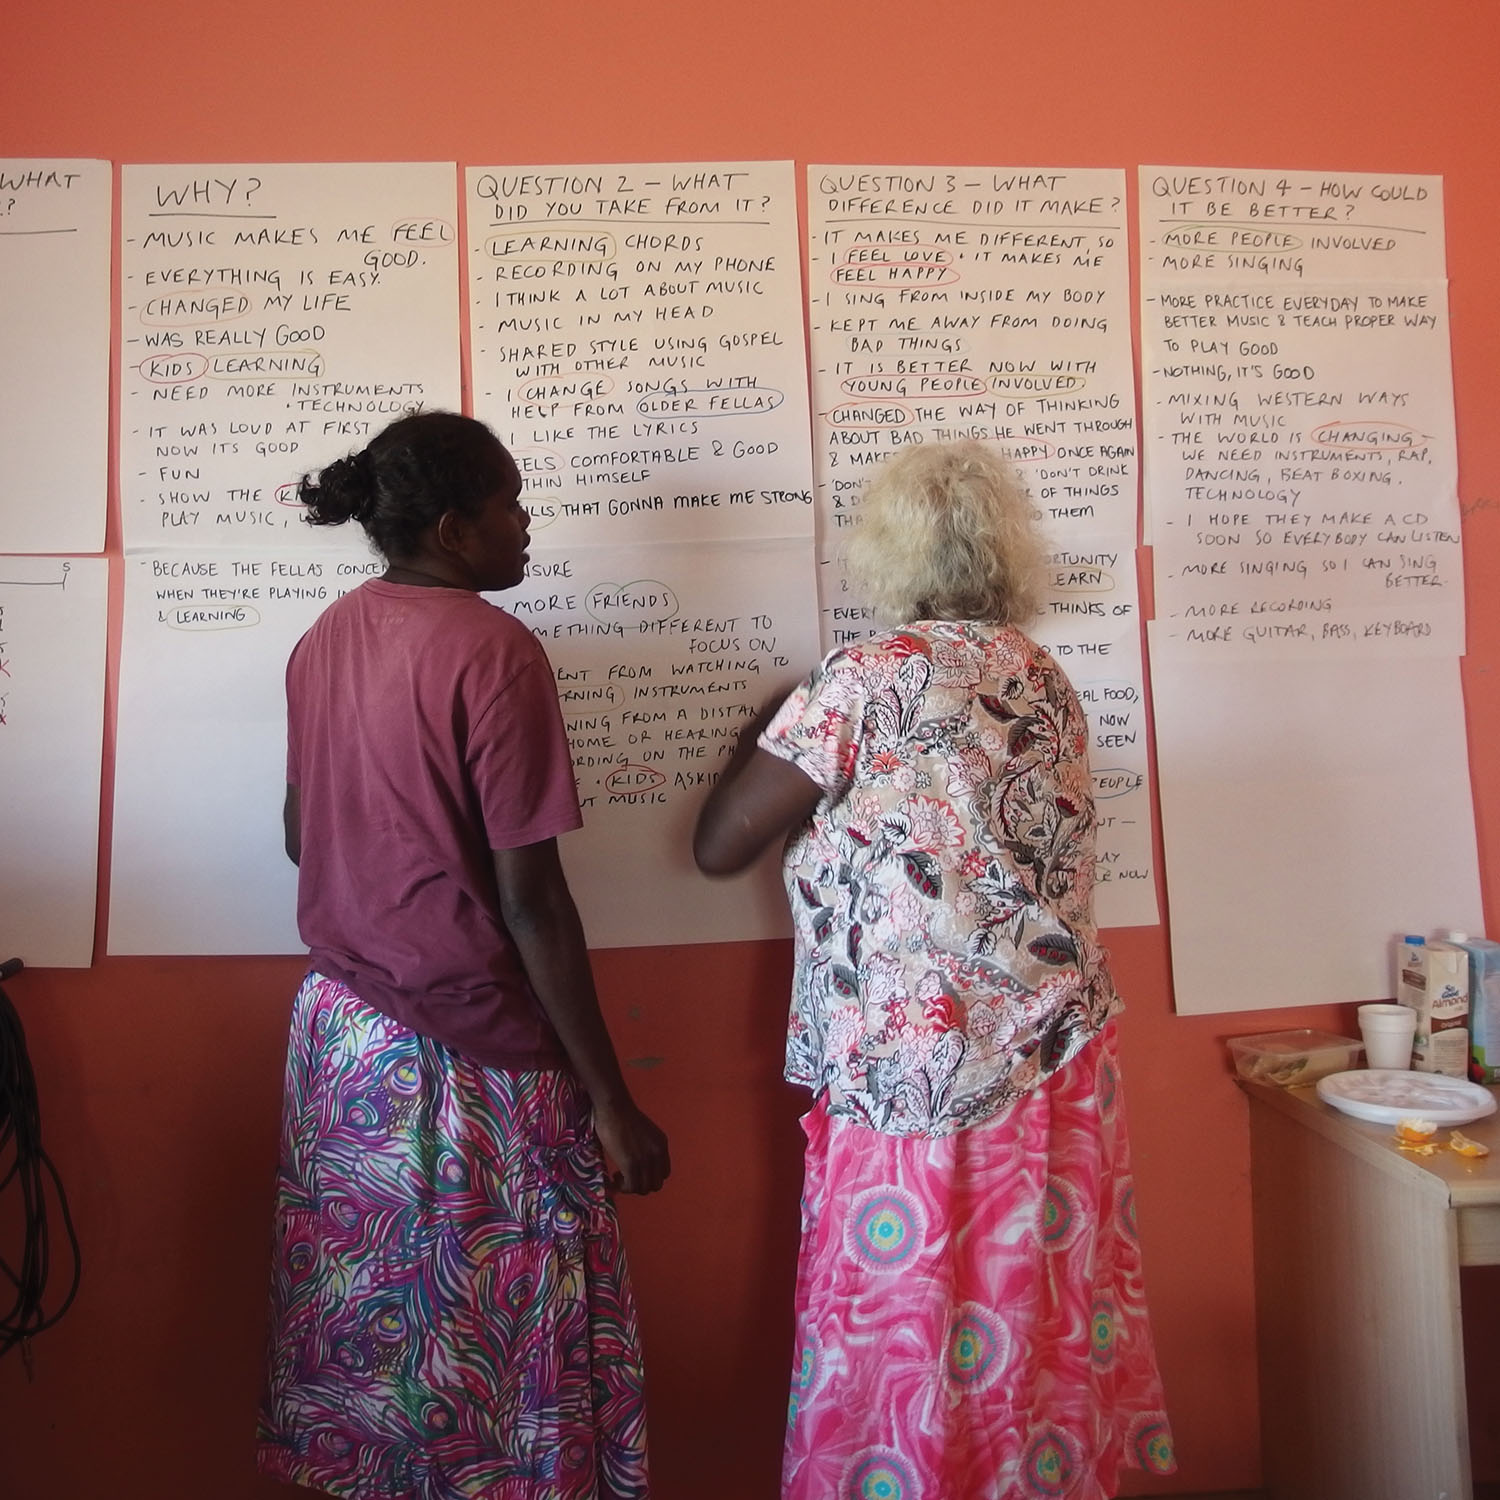 WHAT
?
S
WHY?
- MUSIC MAKES ME FEEL
GOOD.
- EVERYTHING IS EASY.
- CHANGED MY LIFE
- WAS REALLY GOOD
- KIDS LEARNING
- NEED MORE INSTRUMENTS
• TECHNOLOGY
- IT WAS LOUD AT FIRST
NOW IT'S GOOD
- FUN
- SHOW THE
PLAY MUSIC,
- BECAUSE THE FELLAS
WHEN THEY'RE PLAYING
& LEARNING
QUESTION 2 - WHAT
DID YOU TAKE FROM IT?
- LEARNING CHORDS
- RECORDING ON MY PHONE
- I THINK A LOT ABOUT MUSIC
- MUSIC IN MY HEAD
- SHARED STYLE USING GOSPEL
WITH OTHER MUSIC
- I CHANGE SONGS WITH
HELP FROM OLDER FELLAS
I LIKE THE LYRICS
COMFORTABLE & GOOD
HIMSELF
THAT GONNA MAKE ME STRONG
MORE FRIENDS
DIFFERENT TO
FOCUS ON
FROM WATCHING TO
INSTRUMENTS
FROM A
OR HEARING
ON THE
• KIDS
MUSIC
QUESTION 3 - WHAT
DIFFERENCE DID IT MAKE?
- IT MAKES ME DIFFERENT, SO
- I FEEL LOVE • IT MAKES ME
FEEL HAPPY
- I SING FROM INSIDE MY BODY
- KEPT ME AWAY FROM DOING
BAD THINGS
- IT IS BETTER NOW WITH
YOUNG PEOPLE INVOLVED.
- CHANGED THE WAY OF THINKING
ABOUT BAD THINGS HE WENT THROUGH
& HAPPY ONCE AGAIN
& 'DON'T DRINK
& OF THINGS
THEM
&
LEARN
THINKS OF
THE TO THE
FOOD,
NOW
SEEN
NOW
QUESTION 4 - HOW COULD
IT BE BETTER?
- MORE PEOPLE INVOLVED
- MORE SINGING
- MORE PRACTICE EVERYDAY TO MAKE
BETTER MUSIC & TEACH PROPER WAY
TO PLAY GOOD
- NOTHING, IT'S GOOD
- MIXING WESTERN WAYS
WITH MUSIC
- THE WORLD IS CHANGING -
WE NEED INSTRUMENTS, RAP,
DANCING, BEAT BOXING.
TECHNOLOGY
- I HOPE THEY MAKE A CD
SOON SO EVERYBODY CAN LISTEN
- MORE SINGING SO I CAN SING
BETTER.
- MORE RECORDING
- MORE GUITAR, BASS, KEYBOARD
So
Good
Almond